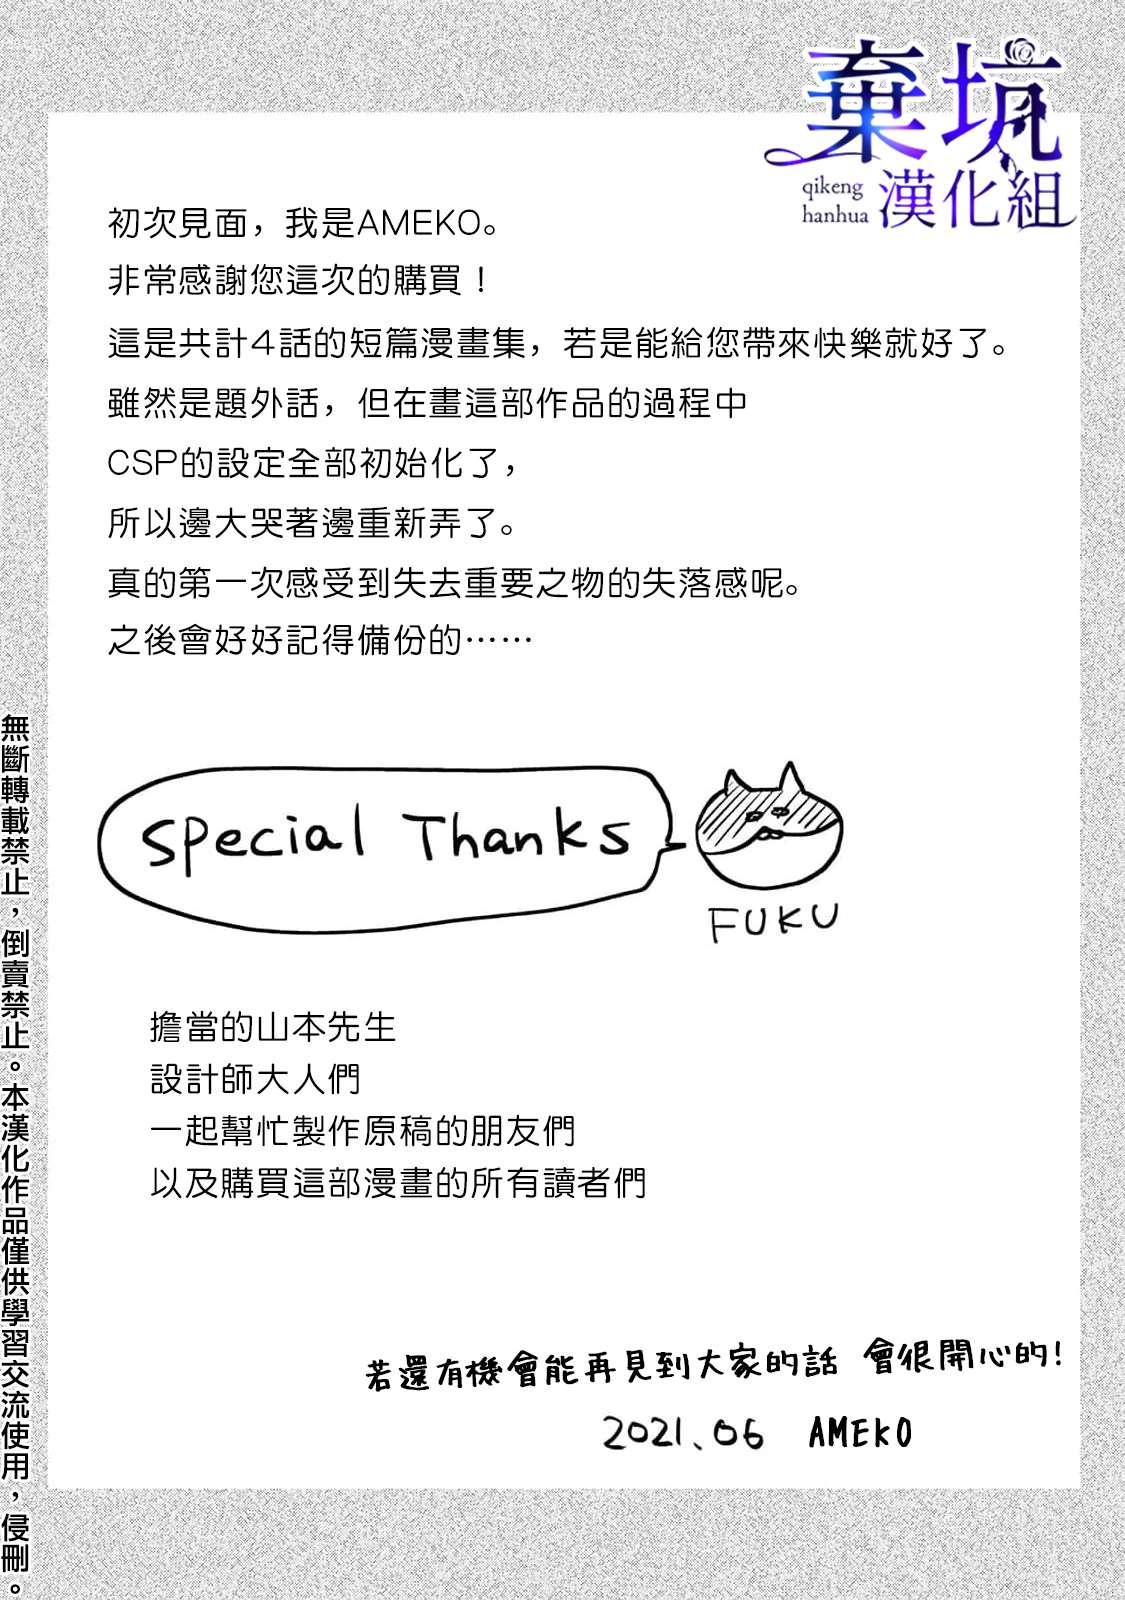 棄坑
qikeng
hanhua
漢化組
初次見面，我是AMEKO。
非常感謝您這次的購買！
這是共計4話的短篇漫畫集，若是能給您帶來快樂就好了。
雖然是題外話，但在畫這部作品的過程中
CSP的設定全部初始化了，
所以邊大哭著邊重新弄了。
真的第一次感受到失去重要之物的失落感呢。
之後會好好記得備份的……
Special Thanks
FUKU
擔當的山本先生
設計師大人們
一起幫忙製作原稿的朋友們
以及購買這部漫畫的所有讀者們
若還有機會能再見到大家的話 會很開心的!
2021.06 AMEKO
無斷轉載禁止，倒賣禁止。本漢化作品僅供學習交流使用，侵刪。